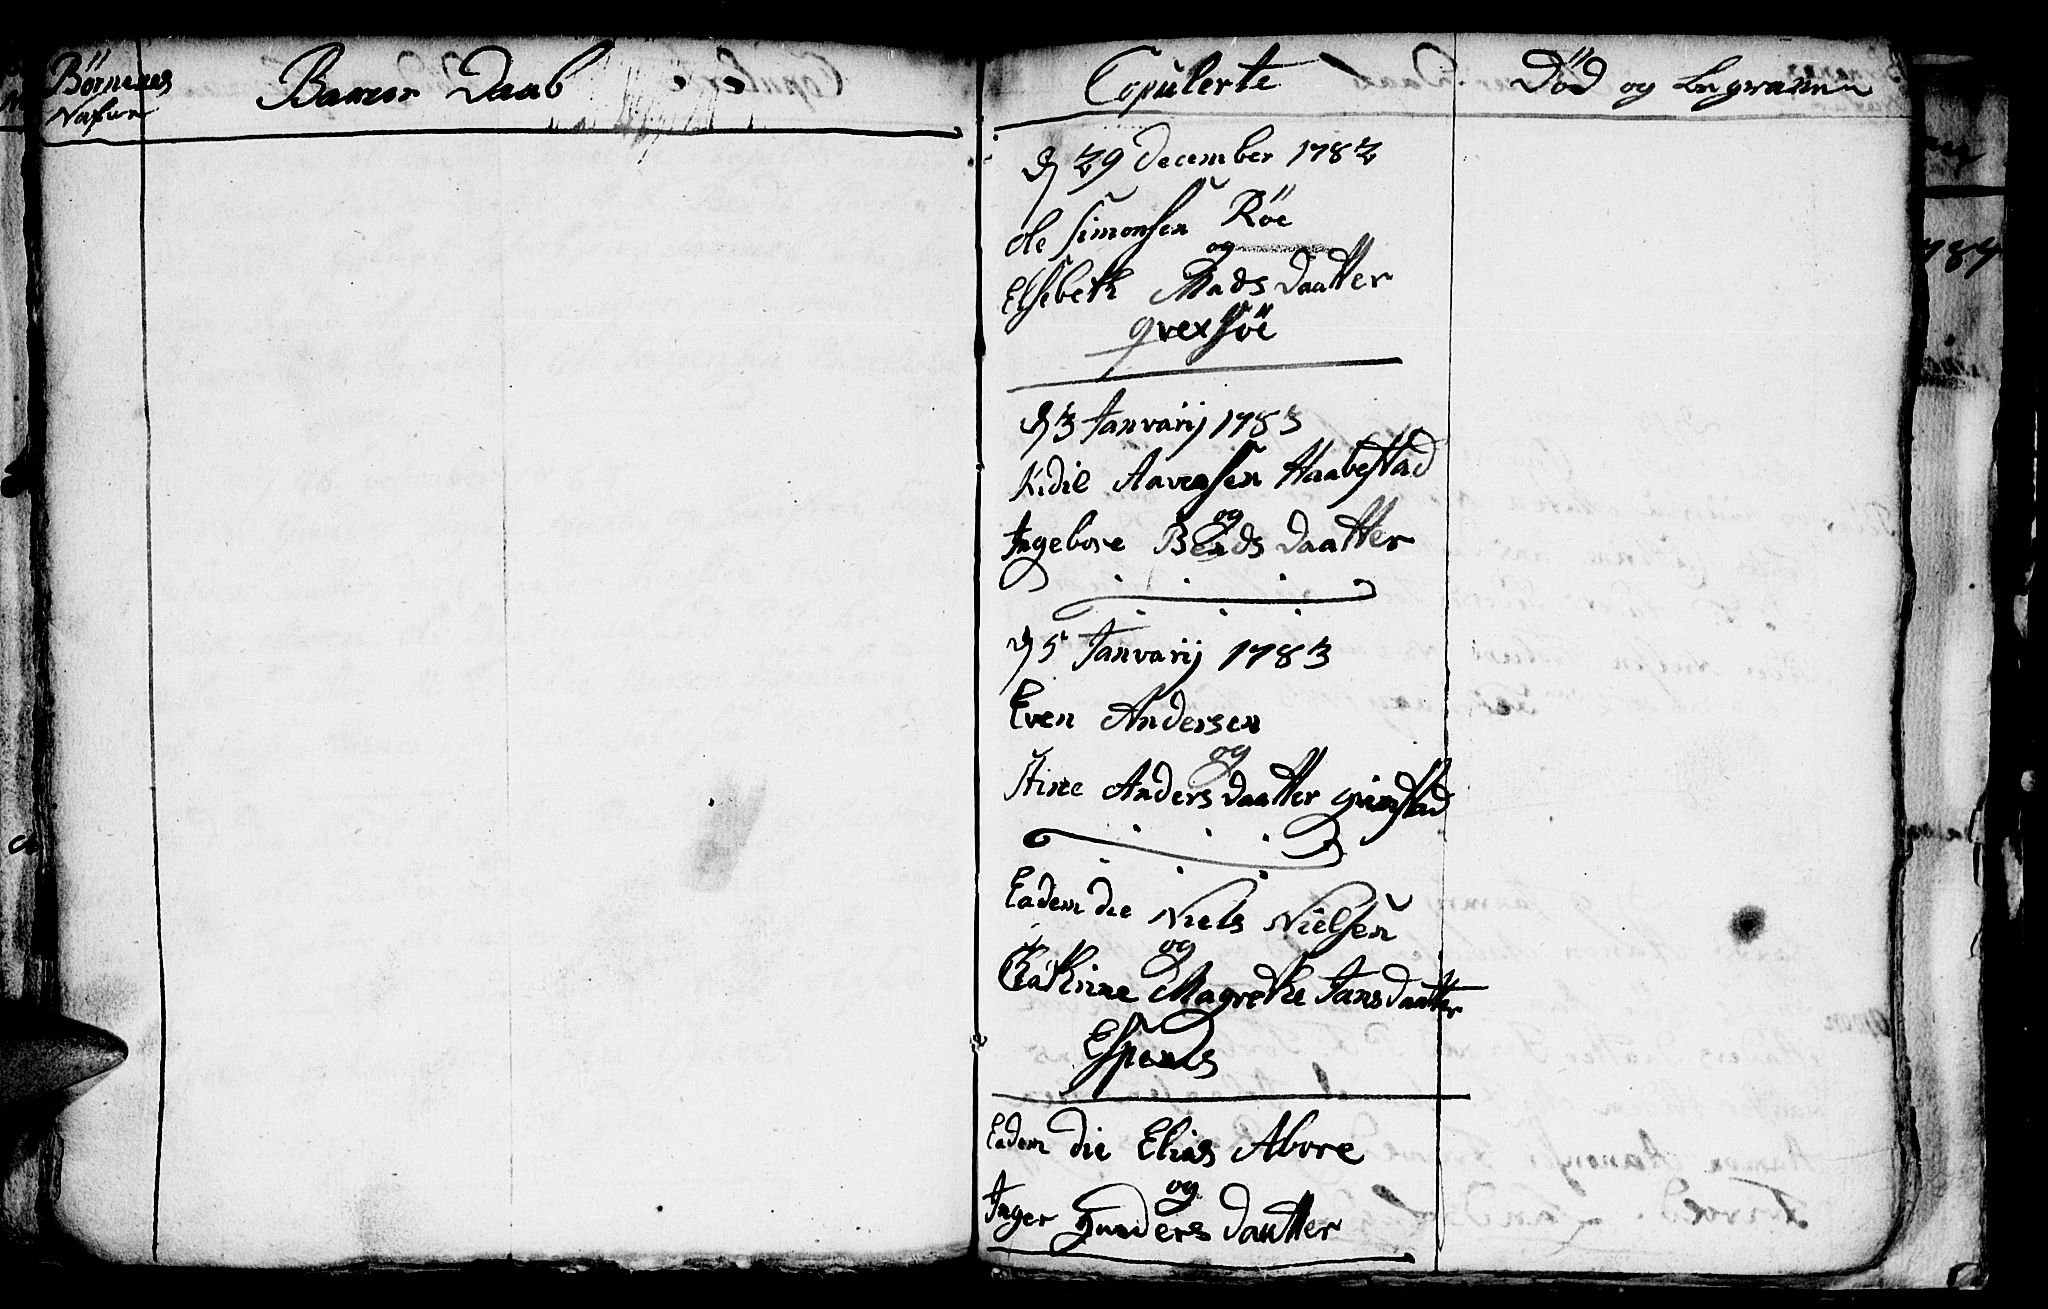 Børnenes
Nafne
Barne Daab
Copulerte
Død og begravne
d 29 December 1782
Ole Simonsen Røe
og
Elsebeth Madsdaatter
qvexsöe
d 3 Janvarij 1783
Kidil Aavensen Haabestad
og
Ingebore Bendsdaatter
d 5 Janvarij 1783
Even Andersen
og
Stine Andersdaatter grimstad
Eadem die Niels Nielsen
og
Cathrine Magrethe Jansdaatter
Espends
Eadem die Elias Abore
og
Inger Gundersdautter